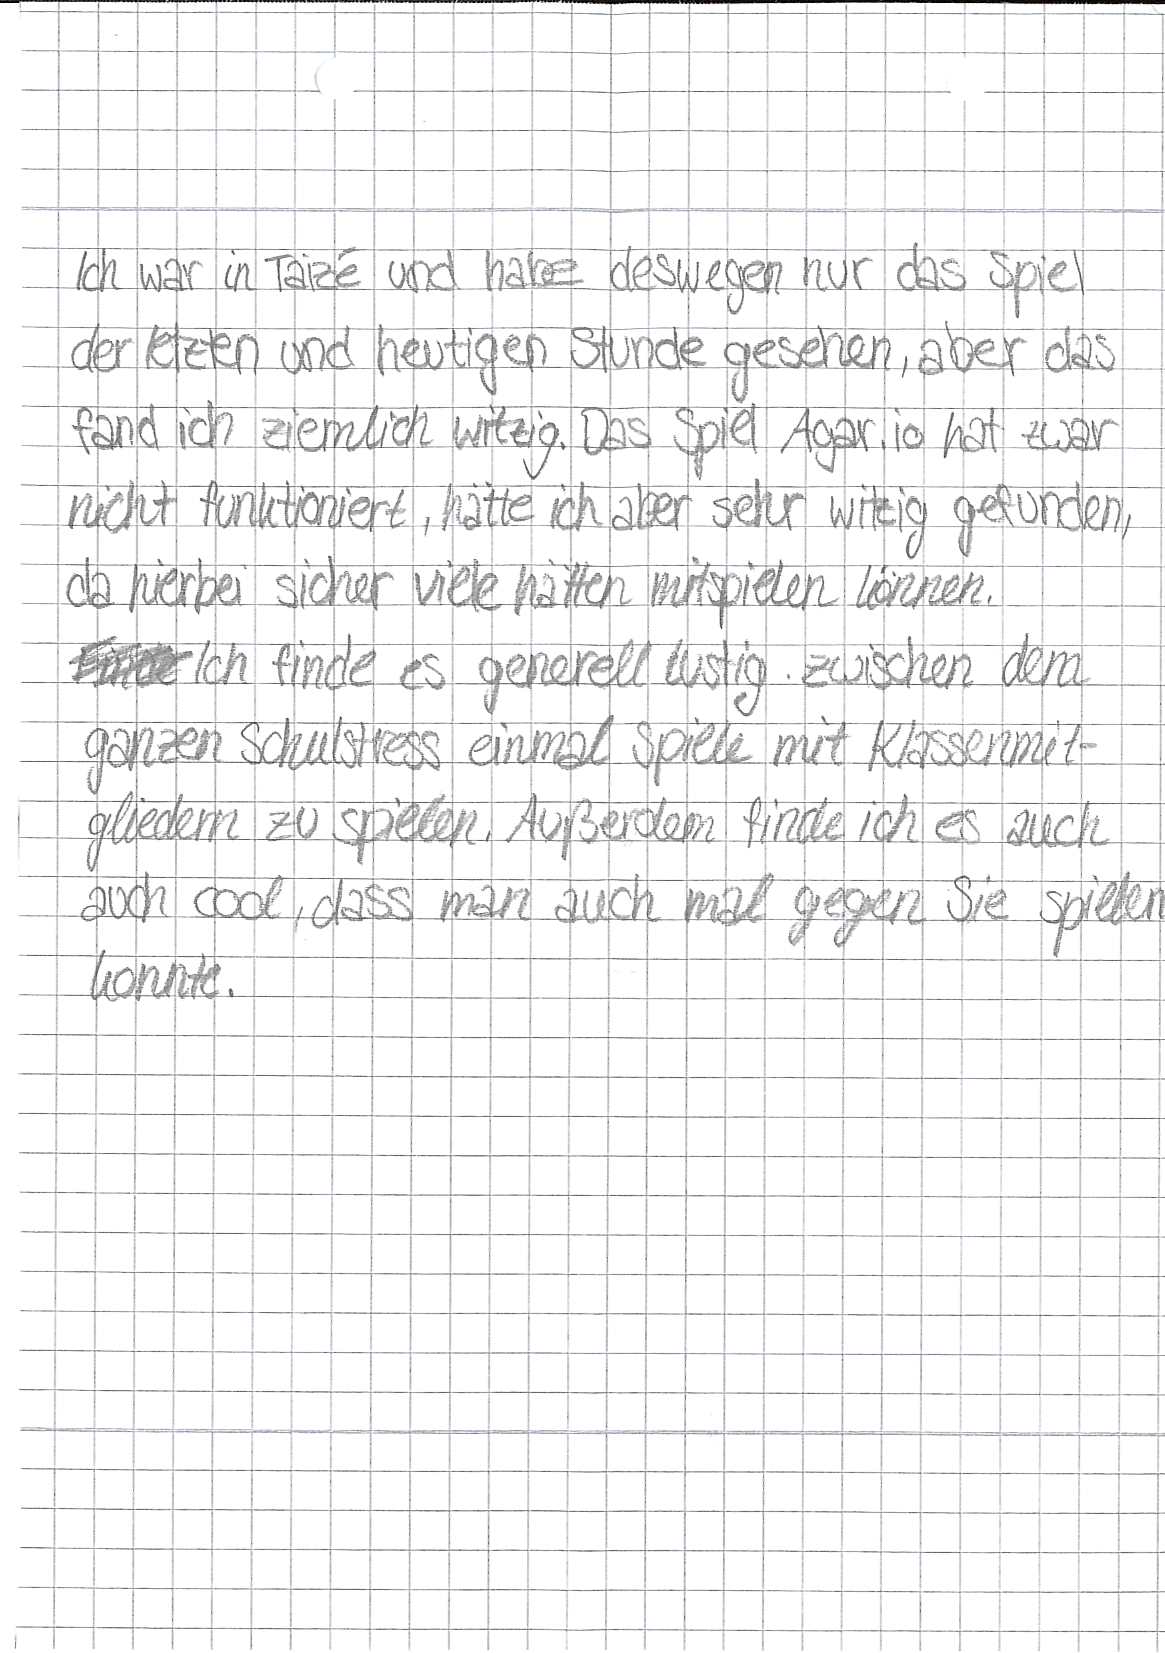 Ich war in Taizé und habe deswegen nur das Spiel
der letzten und heutigen Stunde gesehen, aber das
fand ich ziemlich witzig. Das Spiel Agar.io hat zwar
nicht funktioniert, hätte ich aber sehr witzig gefunden,
da hierbei sicher viele hätten mitspielen können.
Ich finde es generell lustig zwischen dem
ganzen Schulstress einmal Spiele mit Klassenmit-
gliedern zu spielen. Außerdem finde ich es auch
auch cool, dass man auch mal gegen Sie spielen
konnte.